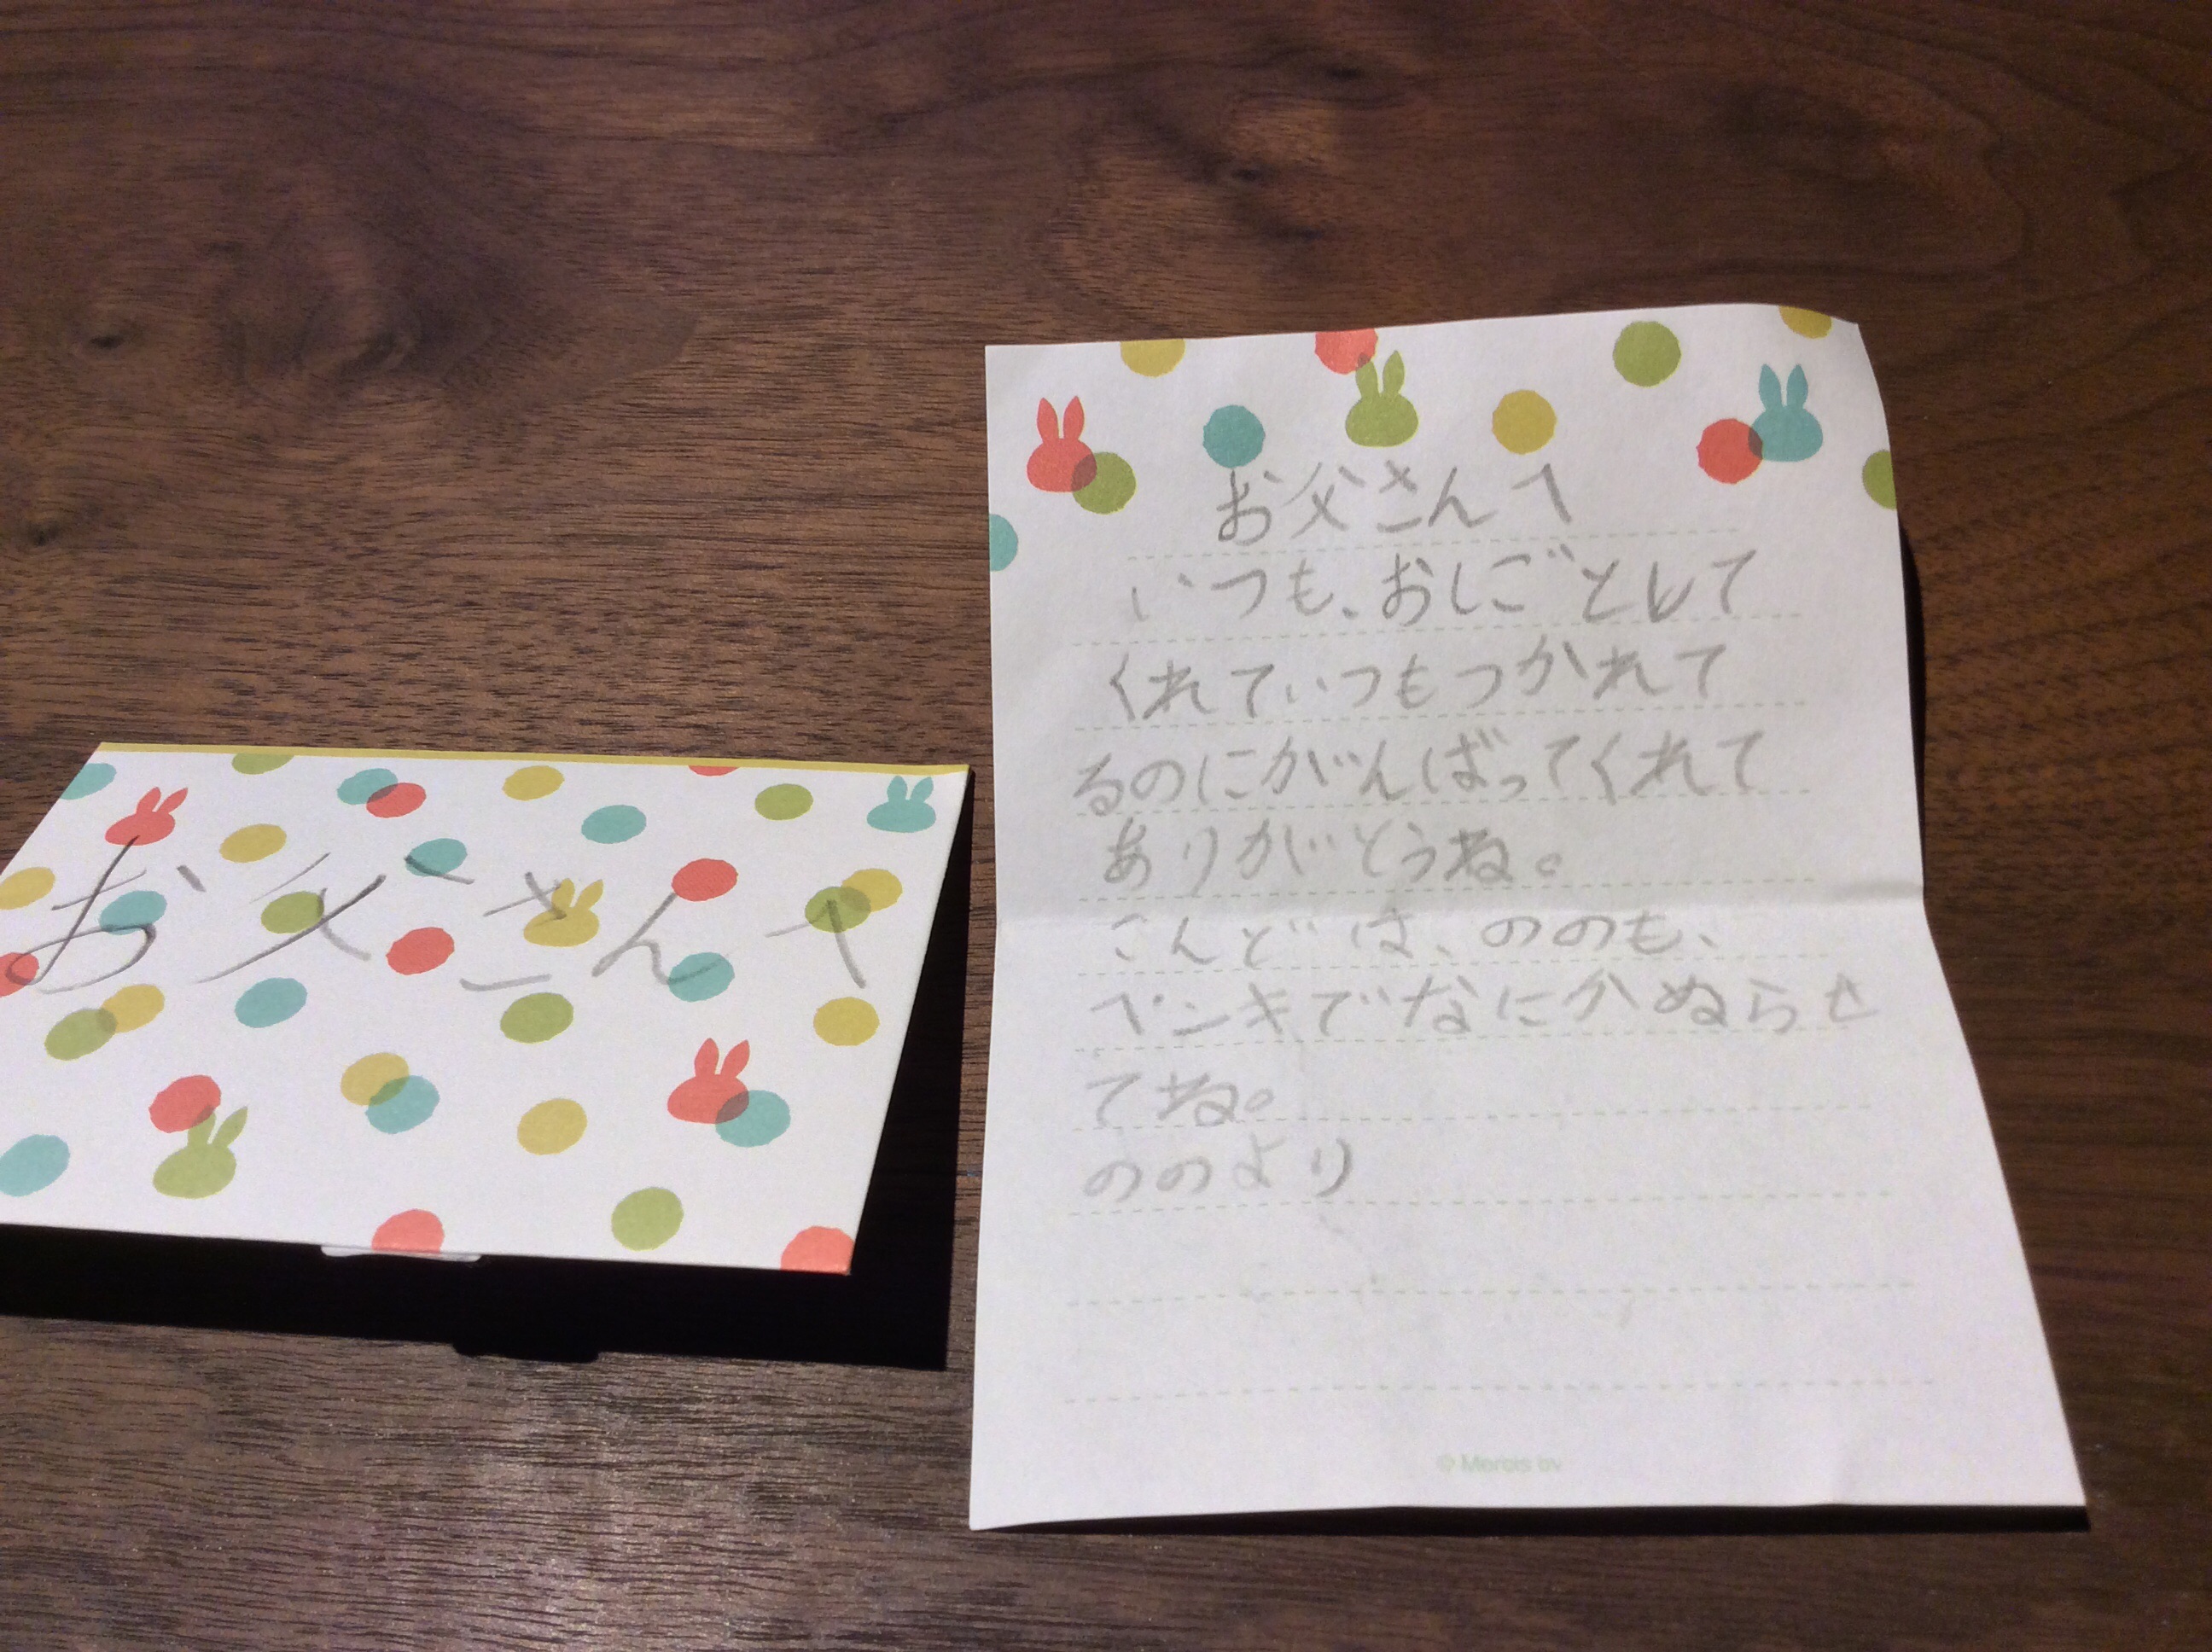 お父さんへ
お父さんへ
いつも、おしごとして
くれていつもつかれて
るのにがんばってくれて
ありがとうね。
こんどは、ののも、
ペンキでなにかぬらせ
てね。
ののより
© Mercis bv